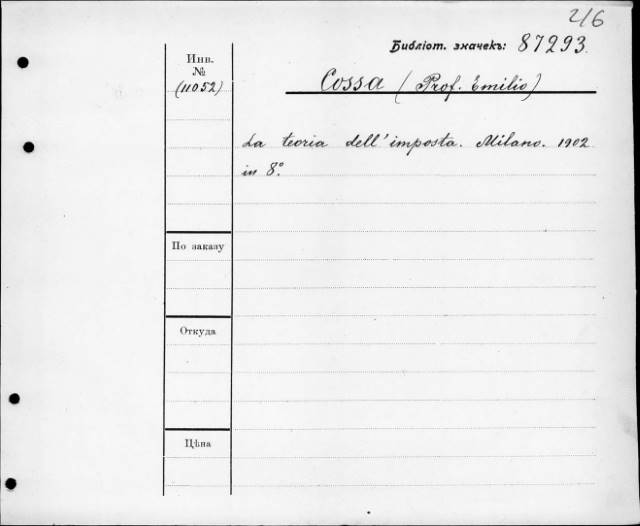 216
Библіот. значекъ: 87293.
Инв.
№
(11052)
Cossa (Prof. Emilio)
La teoria dell'imposta. Milano. 1902
in 8°.
По заказу
Откуда
Цѣна